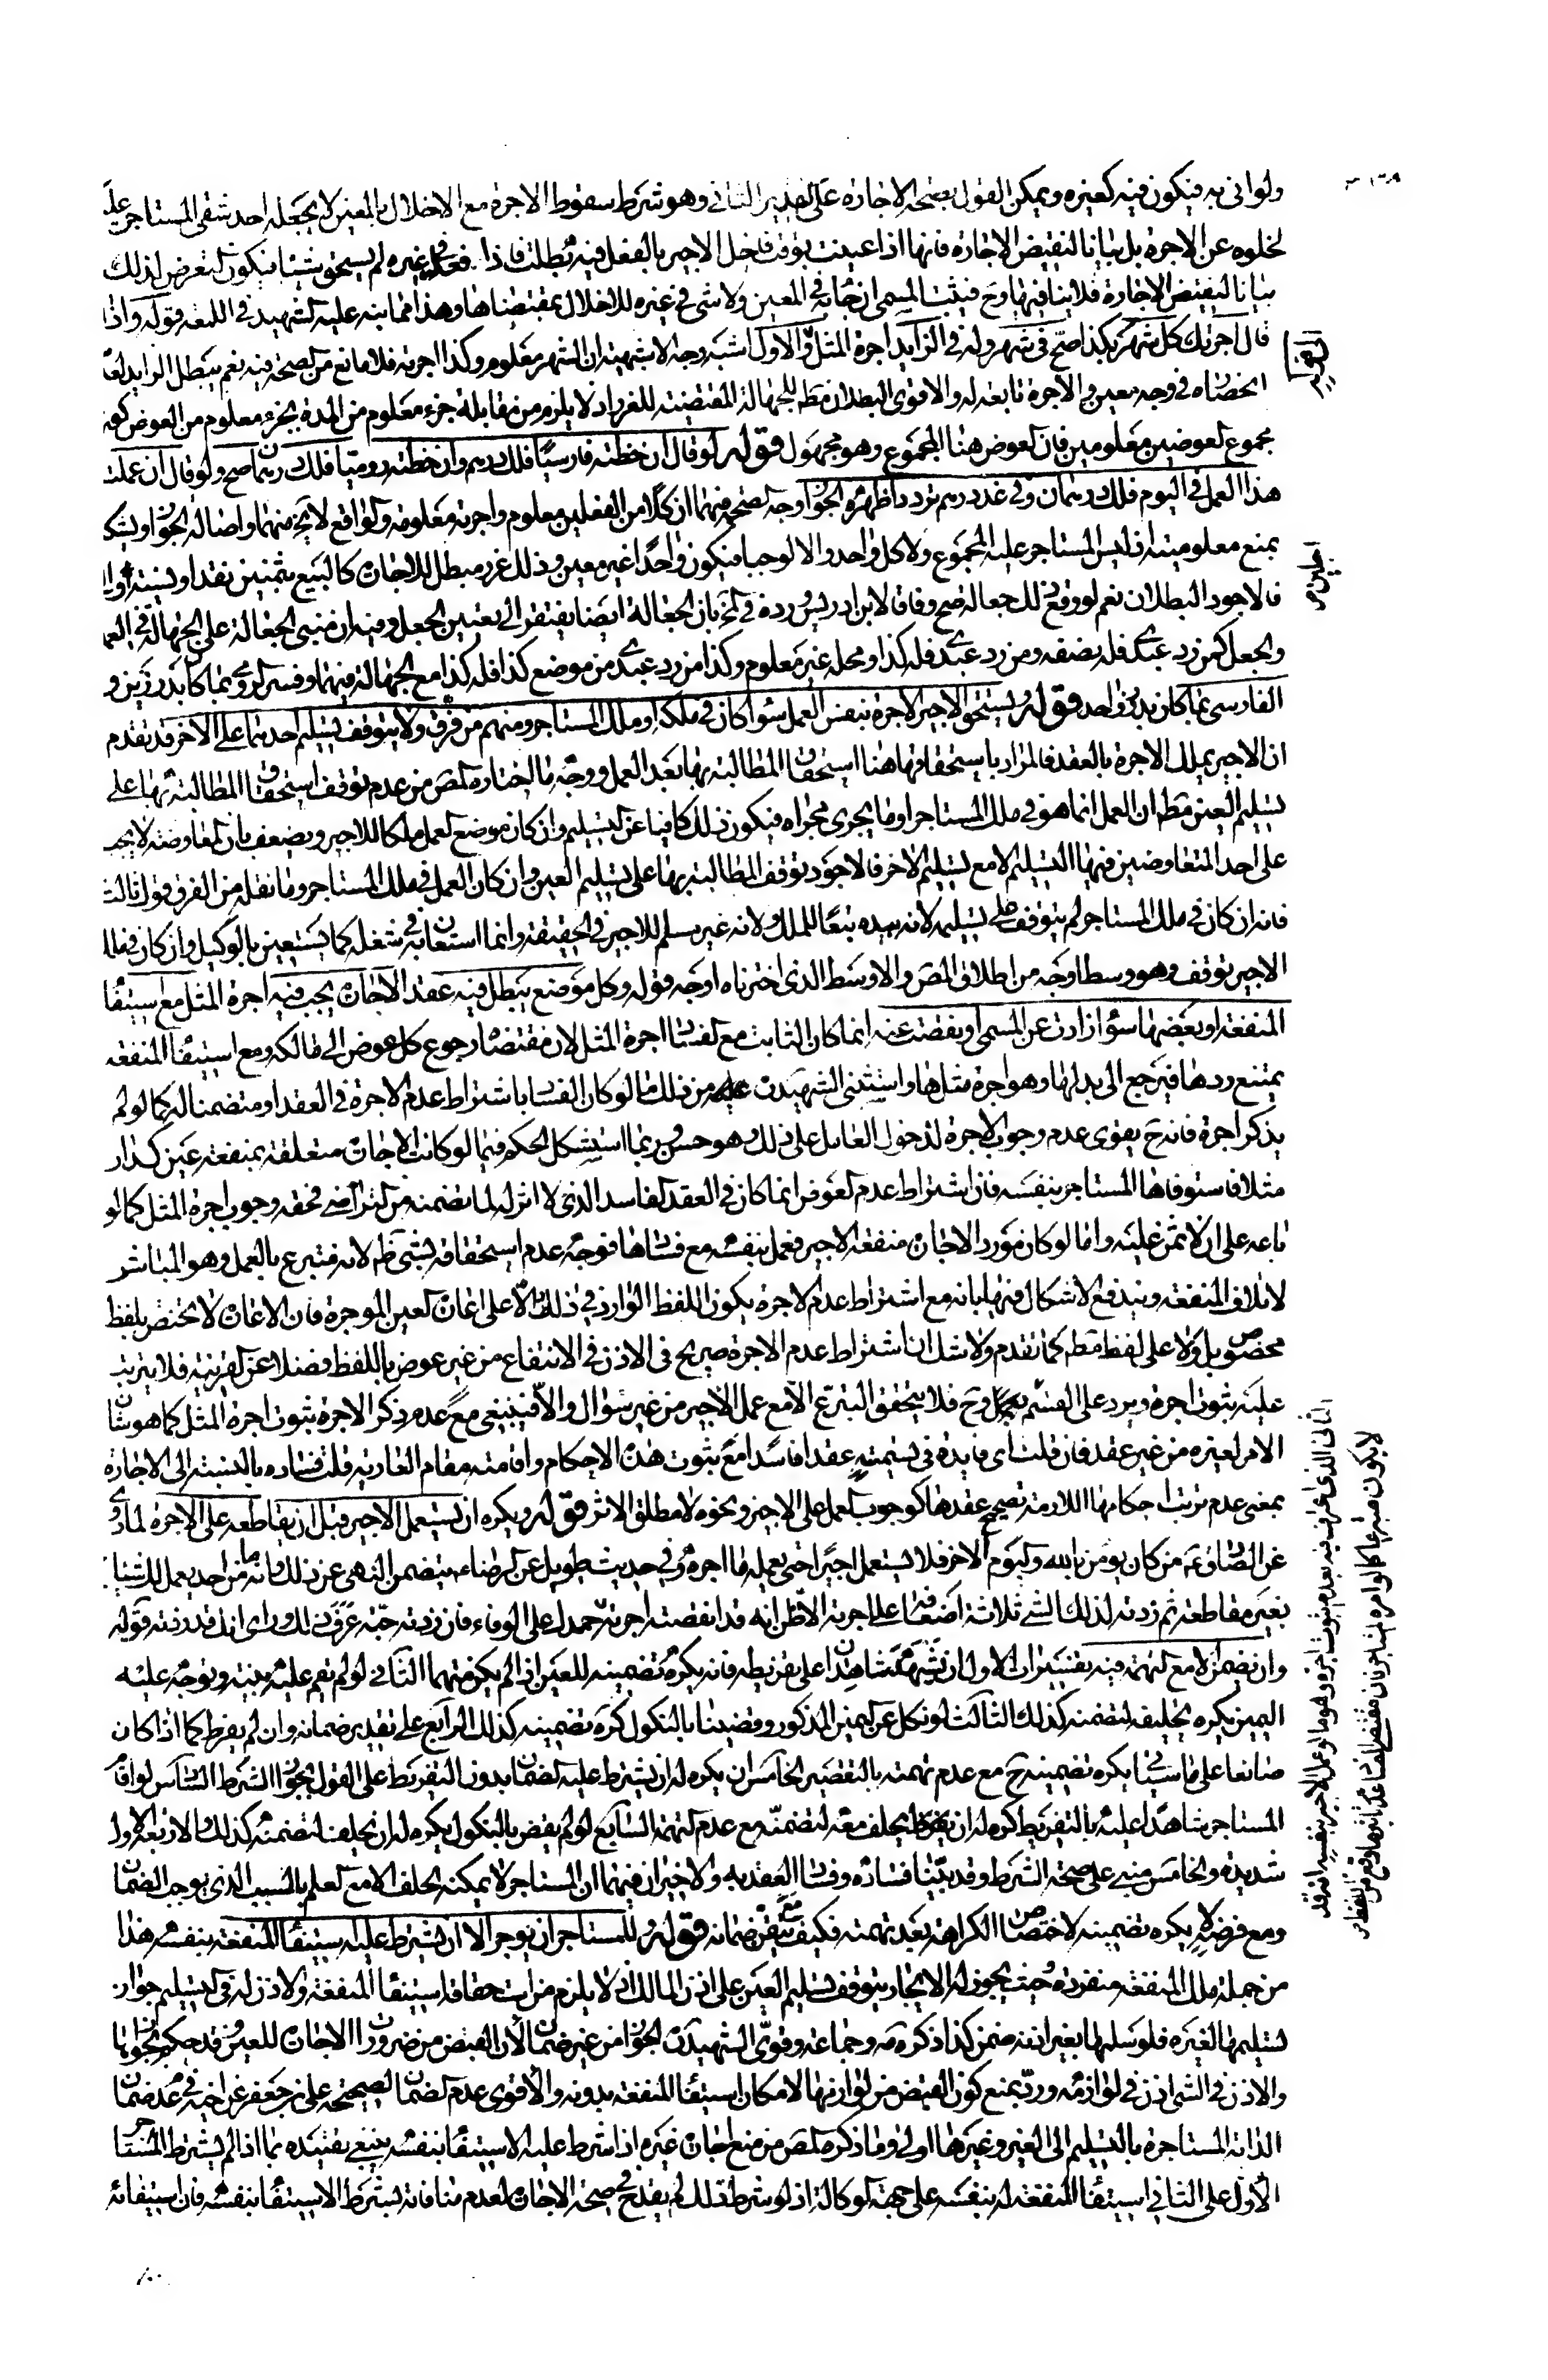 ولو اتى به فيكون فيه كغيره ويمكن القول بصحة الاجارة على التقدير الثانى وهو شرط سقوط الاجرة مع الاخلال بالمعين لا بجعله احد شقى المستاجر عليه
لخلوه عن الاجرة بل بيانا لنقيض الاجارة فانها اذا عينت بوقت فاخل الاجير بالفعل فيه بطلت فاذا فعله فى غيره لم يستحق شيئا فيكون التعرض لذلك
بيانا لنقيض الاجارة فلا ينافيها وح فيثبت المسمى ان جاء به فى المعين ولا شى فى غيره للاخلال بمقتضاها وهذا مما نبه عليه الشهيد فى اللمعة قوله واذا
قال اجرتك كل شهر بكذا صح فى شهر وله فى الزايد اجرة المثل والاول اشبه وجه الاشبهية ان الشهر معلوم وكذا اجرته فلا مانع من الصحة فيه نعم يبطل الزايد لعدم
انحصاره فى وجه معين والاجرة تابعة له والاقوى البطلان مطم للجهالة المقتضية للغرر اذ لا يلزم من مقابلة جزء معلوم من المدة بجزء معلوم من العوض كون
مجموع العوضين معلومين فان العوض هنا المجموع وهو مجهول قوله لو قال ان خطته فارسيا فلك درهم وان خطته روميا فلك درهمان صح ولو قال ان عملت
هذا العمل فى اليوم فلك درهمان وفى غد درهم تردد اظهره الجواز وجه الصحة فيهما ان كلا من الفعلين معلوم واجرته معلومة والواقع لا يخ منهما واصالة الجواز ويشكل
بمنع معلوميته اذ ليس المستاجر عليه المجموع ولا كل واحد والا لوجبا فيكون واحدا غير معين وذلك غرر مبطل للاجارة كالبيع بثمنين نقدا ونسيئة او الى
فالاجود البطلان نعم لو وقع ذلك جعالة صح وفاقا لابن ادريس ورده فى لف بان الجعالة ايضا يفتقر الى تعيين الجعل وفيه ان مبنى الجعالة على الجهالة فى العمل
والجعل كمن رد عبدى فله نصفه ومن رد عبدى فله كذا ومحله غير معلوم وكذا من رد عبدى من موضع كذا فله كذا مع الجهالة فيهما وفسر الرومى بما كان بدرزين و
الفارسى بما كان بدرز واحد قوله يستحق الاجير الاجرة بنفس العمل سواء كان فى ملكه او ملك المستاجر ومنهم من فرق ولا يتوقف تسليم احدهما على الاخر قد تقدم
ان الاجير يملك الاجرة بالعقد فالمراد باستحقاقها هنا استحقاق المطالبة بها بعد العمل ووجه ما اختاره المص من عدم توقف استحقاق المطالبة بها على
تسليم العين مطم ان العمل انما هو فى ملك المستاجر او ما يجرى مجراه فيكون ذلك كافيا عن التسليم وان كان موضع العمل ملكا للاجير ويضعف بان المعاوضة لا يجب
على احد المتعاوضين فيها التسليم الا مع تسليم الاخر فالاجود توقف المطالبة بها على تسليم العين وان كان العمل فى ملك المستاجر وما نقله من الفرق قول ثالث
فانه ان كان فى ملك المستاجر لم يتوقف على تسليمه لانه بيده تبعا للملك ولانه غير مسلم للاجير فى الحقيقة وانما استعان به فى شغله كما يستعين بالوكيل وان كان فى ملك
الاجير توقف وهو وسطا اوجه من اطلاق المص والاوسط الذى اخترناه اوجه قوله وكل موضع يبطل فيه عقد الاجارة يجب فيه اجرة المثل مع استيفاء
المنفعة او بعضها سواء زادت عن المسمى او نقصت عنه انما كان الثابت مع الفساد اجرة المثل لان مقتضاه رجوع كل عوض الى مالكه ومع استيفاء المنفعة
يمتنع ردها فيرجع الى بدلها وهو اجرة مثلها واستثنى الشهيد من ذلك ما لو كان الفساد باشتراط عدم الاجرة فى العقد او متضمنا له كما لو لم
يذكر اجرة فانه ح يقوى عدم وجوب الاجرة لدخول العامل على ذلك وهو حسن وربما استشكل الحكم فيما لو كانت الاجارة متعلقة بمنفعة عين كدار
مثلا فاستوفاها المستاجر بنفسه فان اشتراط عدم العوض انما كان فى العقد الفاسد الذى لا اثر له لما تضمنه من التراضى فحقه وجوب اجرة المثل كما لو
باعه على ان لا ثمن عليه واما لو كان مورد الاجارة منفعة الاجير فعمل بنفسه مع فسادها فوجه عدم استحقاقه لشى ظ لانه متبرع بالعمل وهو المباشر
لاتلاف المنفعة ويندفع الاشكال فيها بانه مع اشتراط عدم الاجرة يكون اللفظ الوارد فى ذلك دالا على اعارة العين الموجرة فان الاعارة لا تختص بلفظ
مخصوص بل ولا على لفظ مطم كما تقدم ولا شك ان اشتراط عدم الاجرة صريح فى الاذن فى الانتفاع من غير عوض باللفظ فضلا عن القرينة فلا يترتب
عليه ثبوت اجرة ويرد على القسم وح فلا يتحقق التبرع الا مع عمل الاجير من غير سؤال والا فينبغى مع عدم ذكر الاجرة ثبوت اجرة المثل كما هو شان
الامر لغيره من غير عقد فان قلت اى فايدة فى تسميته عقدا فاسدا مع ثبوت هذه الاحكام واقامته مقام العارية قلت فساده بالنسبة الى الاجارة
بمعنى عدم ترتب احكامها اللازمة لصحيح عقدها كوجوب العمل على الاجير ونحوه لا مطلق الاثر قوله ويكره ان يستعمل الاجير قبل ان يقاطعه على الاجرة لما روى
عن الصادق ع من كان يومن بالله واليوم الاخر فلا يستعمل اجيرا حتى يعلمه ما اجره وفى حديث طويل عن الرضا ع يتضمن النهى عن ذلك وانه ما من احد يعمل لك شيئا
بغير مقاطعة ثم زدته لذلك الشى ثلاثة اضعاف على اجرته الا ظن انه قد انقصته اجرته حمدك على الوفاء فان زدته حبة عرف ذلك وراى انك قد زدته قوله
وان يضمن الا مع التهمة فيه تفسيرات الاول ان يشهد شاهدان على تفريطه فانه يكره تضمينه للعين ان لم يكن متهما الثانى لو لم يقم عليه بينة وتوجه عليه
اليمين يكره تحليفه لتضمنه كذلك الثالث لو نكل عن اليمين المذكور وقضينا بالنكول كره تضمينه كذلك الرابع على تقدير ضمانه وان لم يفرط كما اذا كان
صانعا على ما سياتى يكره تضمينه ح مع عدم تهمته بالتقصير الخامس ان يكره له ان يشترط عليه الضمان بدون التفريط على القول بجواز الشرط السادس لو اقام
المستاجر شاهدا عليه بالتفريط كره له ان يحلف معه لتضمنه مع عدم التهمة السابع لو لم يقض بالنكول يكره له ان يحلف لتضمنه كذلك والاربعة الاول
شديدة والخامس مبنى على صحة الشرط وقد بينا فساده وفساد العقد به والاخيران فيهما ان المستاجر لا يمكنه الحلف الا مع العلم بالسبب الذى يوجب الضمان
ومع فرضه لا يكره تضمينه لاختصاص الكراهة بعد تهمته فكيف ضمانه قوله وللمستاجر ان يوجر الا ان يشترط عليه استيفاء المنفعة بنفسه هذا
من جملة ملك المنفعة منفردة وحيث يجوز له الايجار يتوقف تسليم العين على اذن المالك اذ لا يلزم من استحقاقه استيفاء المنفعة والاذن له فى التسليم جواز
تسليمها لغيره فلو سلمها بغير اذنه ضمن كذا ذكره مه وجماعة وقوى الشهيد الجواز من غير ضمان لان القبض من ضرورات الاجارة للعين وقد حكم بجوازها
والاذن فى الشى اذن فى لوازمه ورد بمنع كون القبض من لوازمها لامكان استيفاء المنفعة بدونه والاقوى عدم الضمان لصحيحة على بن جعفر عن اخيه فى عدم ضمان
الدابة المستاجرة بالتسليم الى الغير وغيرها اولى وما ذكره المص من منع اجارة غيره اذا شرط عليه الاستيفاء بنفسه ينبغى تقييده بما اذا لم يشترط المستاجر
الاول على الثانى استيفاء المنفعة له بنفسه على جهة الوكالة اذ لو شرط ذلك لم يقدح فى صحة الاجارة لعدم منافاته لشرط الاستيفاء بنفسه فان استيفائه